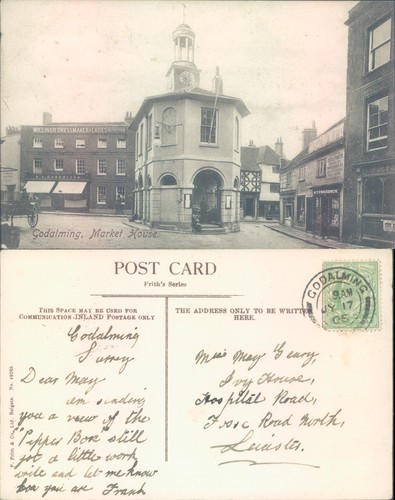 MILLINER DRESSMAKER & LADIES
Godalming, Market House.
POST CARD
Frith's Series
THIS SPACE MAY BE USED FOR
COMMUNICATION-INLAND POSTAGE ONLY
THE ADDRESS ONLY TO BE WRITTEN
HERE.
GODALMING
9 AM
JY 17
05
F. Frith & Co., Ltd. Reigate. No.
Godalming
Surry
Dear May
am sending
you a view of the
"Pepper Box" still
got a little work
write and let me know
how you are Frank
Miss May Geary,
Ivy House,
Hospital Road,
Fosse Road North,
Leicester.